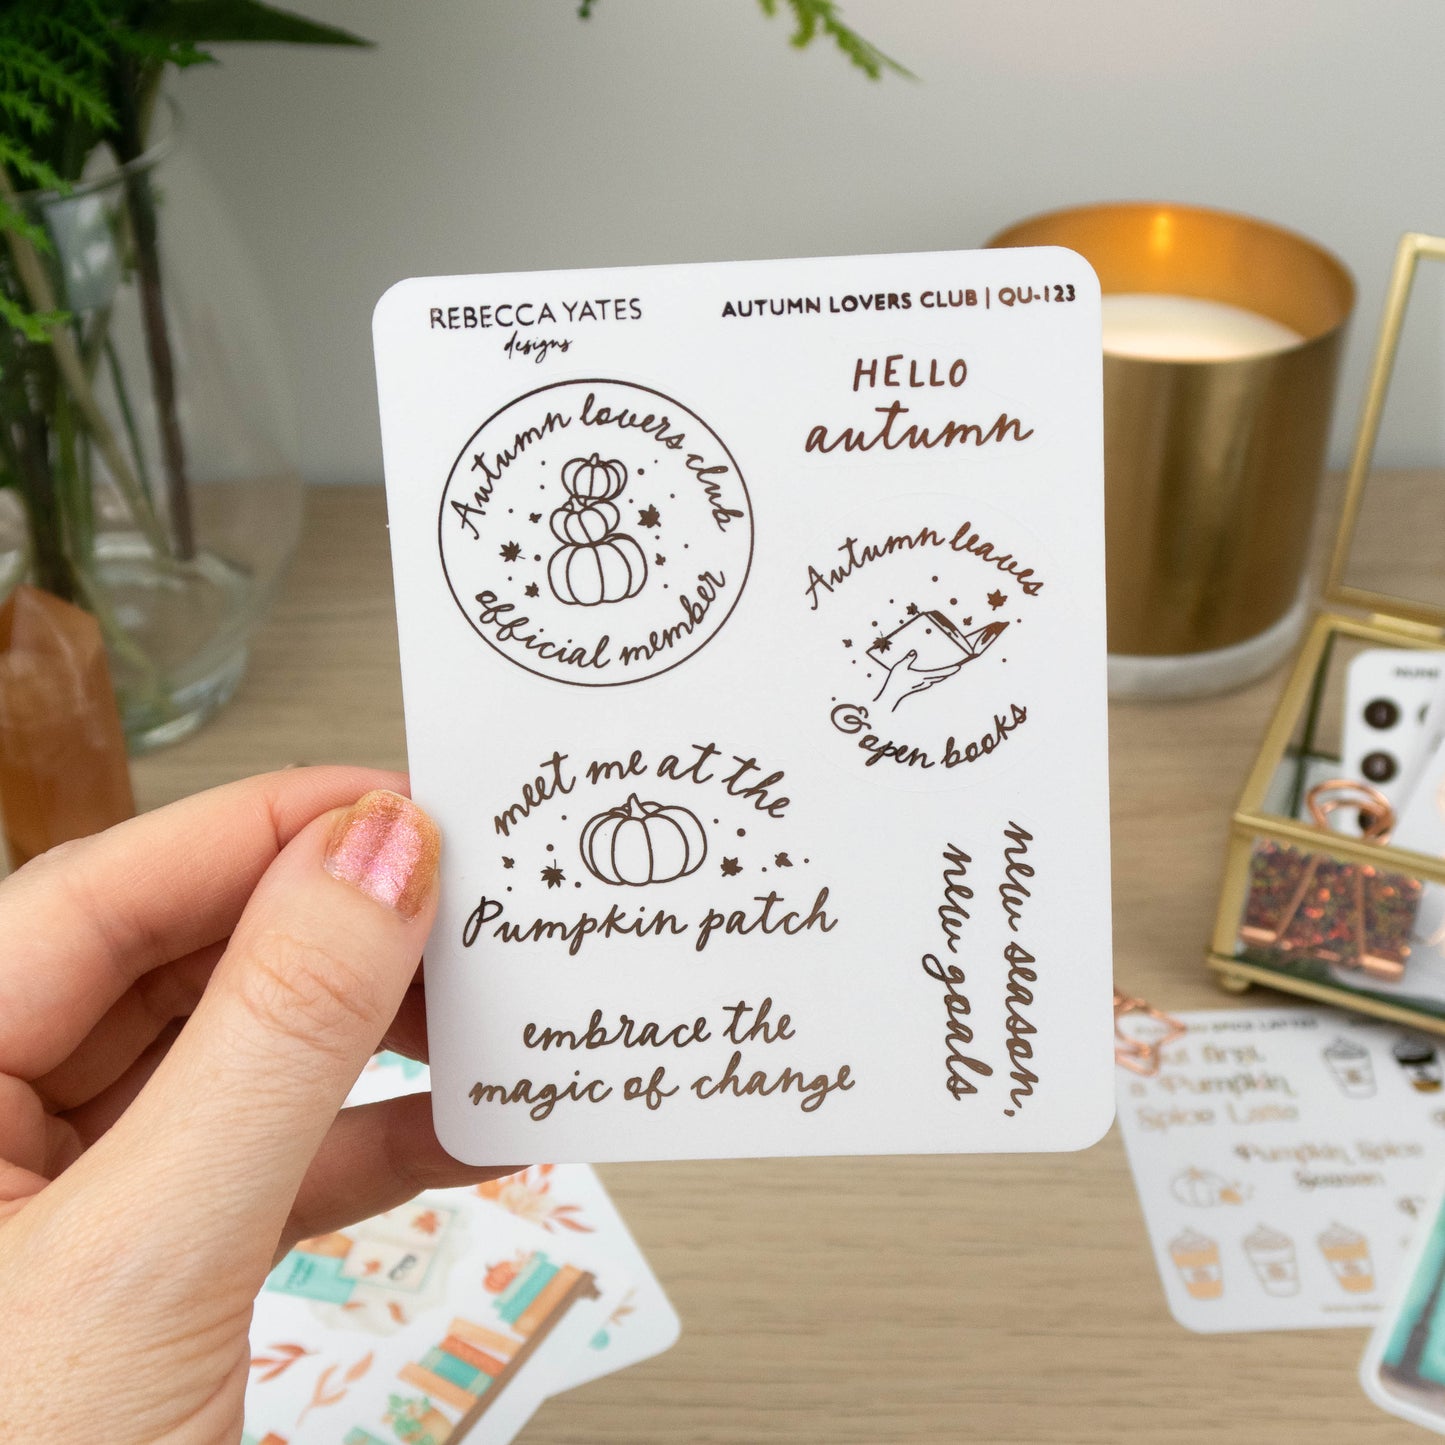 REBECCA YATES
designs
AUTUMN LOVERS CLUB | QU-123
Autumn lovers club
official member
HELLO
autumn
Autumn leaves
& open books
meet me at the
Pumpkin patch
embrace the
magic of change
new season,
new goals
Pumpkin
Spice Latte
Pumpkin Spice
Season